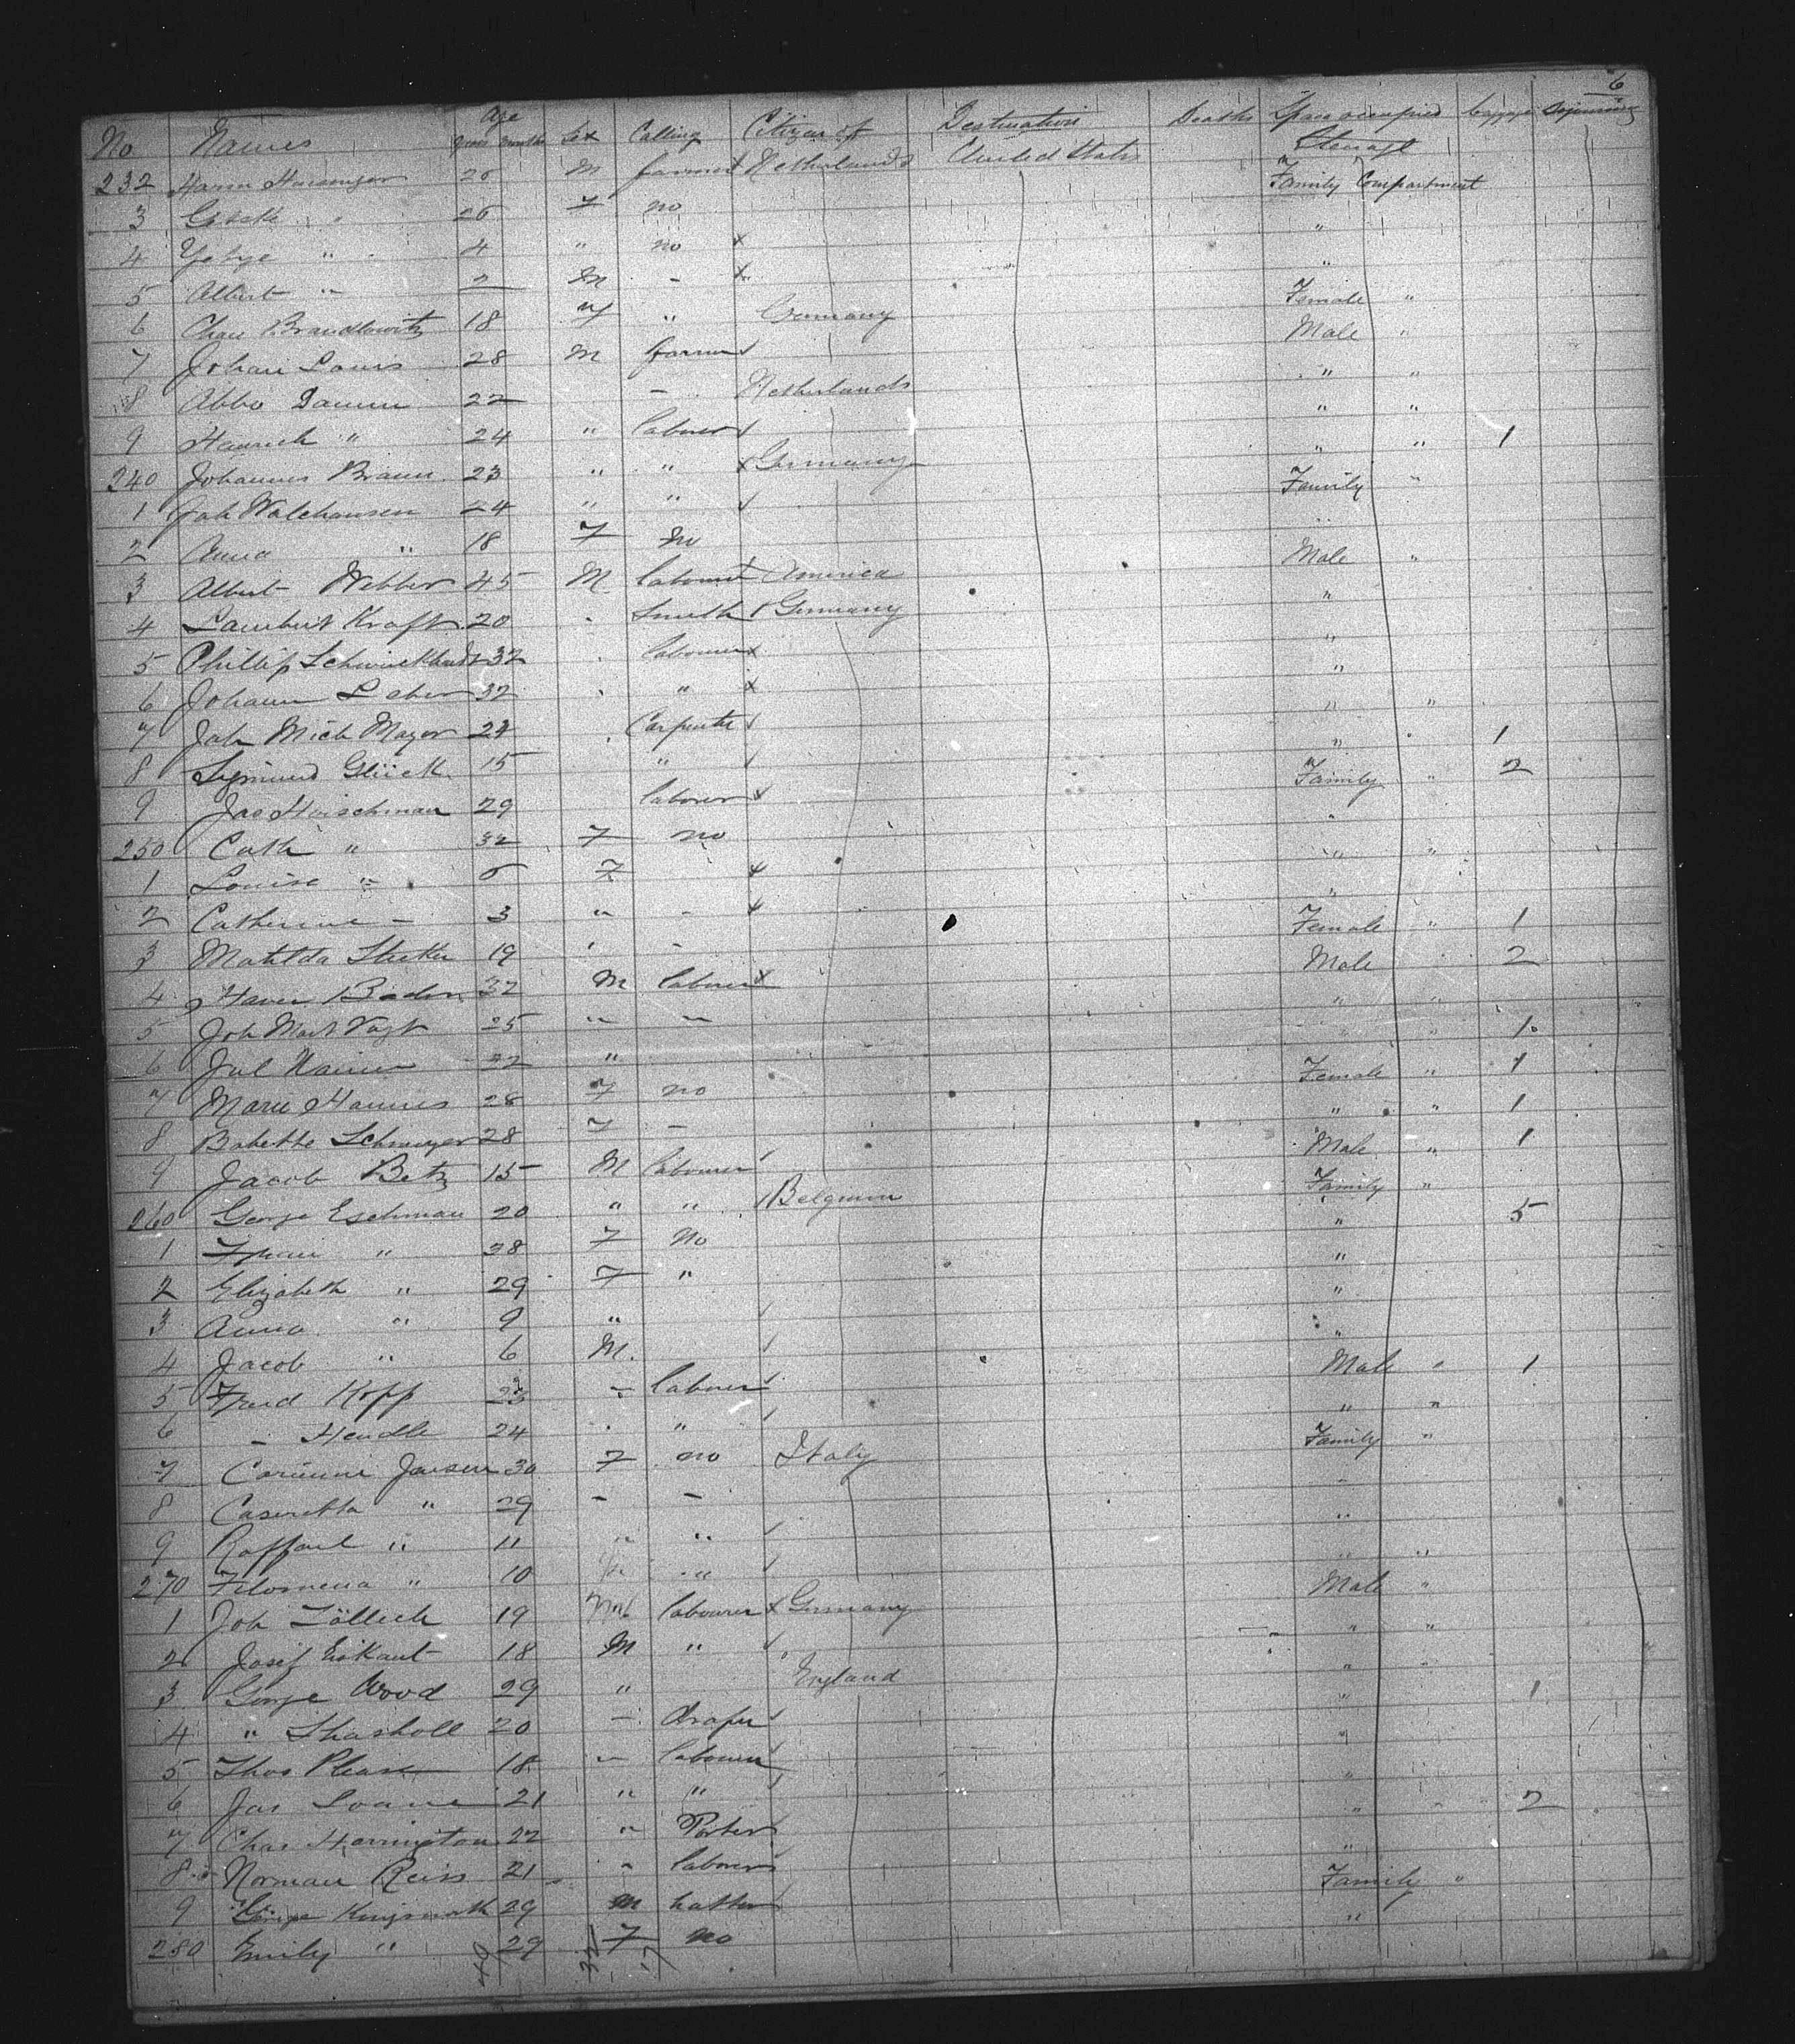 6
Age
No Names years months Sex Calling Citizen of Destination Deaths Space occupied luggage
Steerage
232 Harm 28 M farmer Netherlands United States Family Compartment
3 " 26 F no "
4 " 4 " no "
5 Albert " 2 M - "
6 18 F " Germany Female "
7 Johan Louis 28 M farmer Male "
8 Abbo Damm 22 - Netherlands " "
9 Heinrich " 24 " laborer " "
240 Johannes Braun 23 " " Germany " " 1
1 Joh Walehausen 24 " " Family "
2 Anna " 18 F no "
3 Albert Webber 45 M labourer America Male "
4 Lambert Kraft 20 Smith Germany "
5 Phillip 32 labourer "
6 Johann 32 " "
7 Joh Mich Mayer 24 Carpenter " "
8 Sigmund Glück 15 " " 1
9 Jac Hirschman 29 laborer Family " 2
250 Cath " 32 F no "
1 Louise " F " "
2 Catherine - 3 " - "
3 Matilda 19 - Female " 1
4 Baden 32 M labourer Male 2
5 Joh Mart Vogt 25 " " " "
6 Jul 32 " " " 1
7 Marie Hannes 28 F no Female " 1
8 Babette 28 F - " " 1
9 Jacob Betz 15 M labourer Male " 1
260 George Eschman 20 " " Belgium Family "
1 " 28 F No " 5
2 Elizabeth " 29 F " "
3 Anna " 9 " "
4 Jacob " 6 M. "
5 Fred Kopp 23 - labourer Male " 1
6 - Hendle 24 " " "
7 Jansen 30 F no Italy Family "
8 " 29 - - "
9 Raffael " 11 " " "
270 Filomena " 10 " " "
1 Joh Zöllich 19 M labourer Germany Male "
2 Josef Eiskant 18 M " " "
3 George Wood 29 " England " "
4 " 20 - draper " 1
5 Thos Please 18 " labourer "
6 Jas Loane 21 " " "
7 Chas Harrington 22 " Porter " 2
8 Norman Reiss 21 " laborer "
9 George Kingsnorth 29 M hatter Family "
280 Emily " 29 F no "
49 32 17